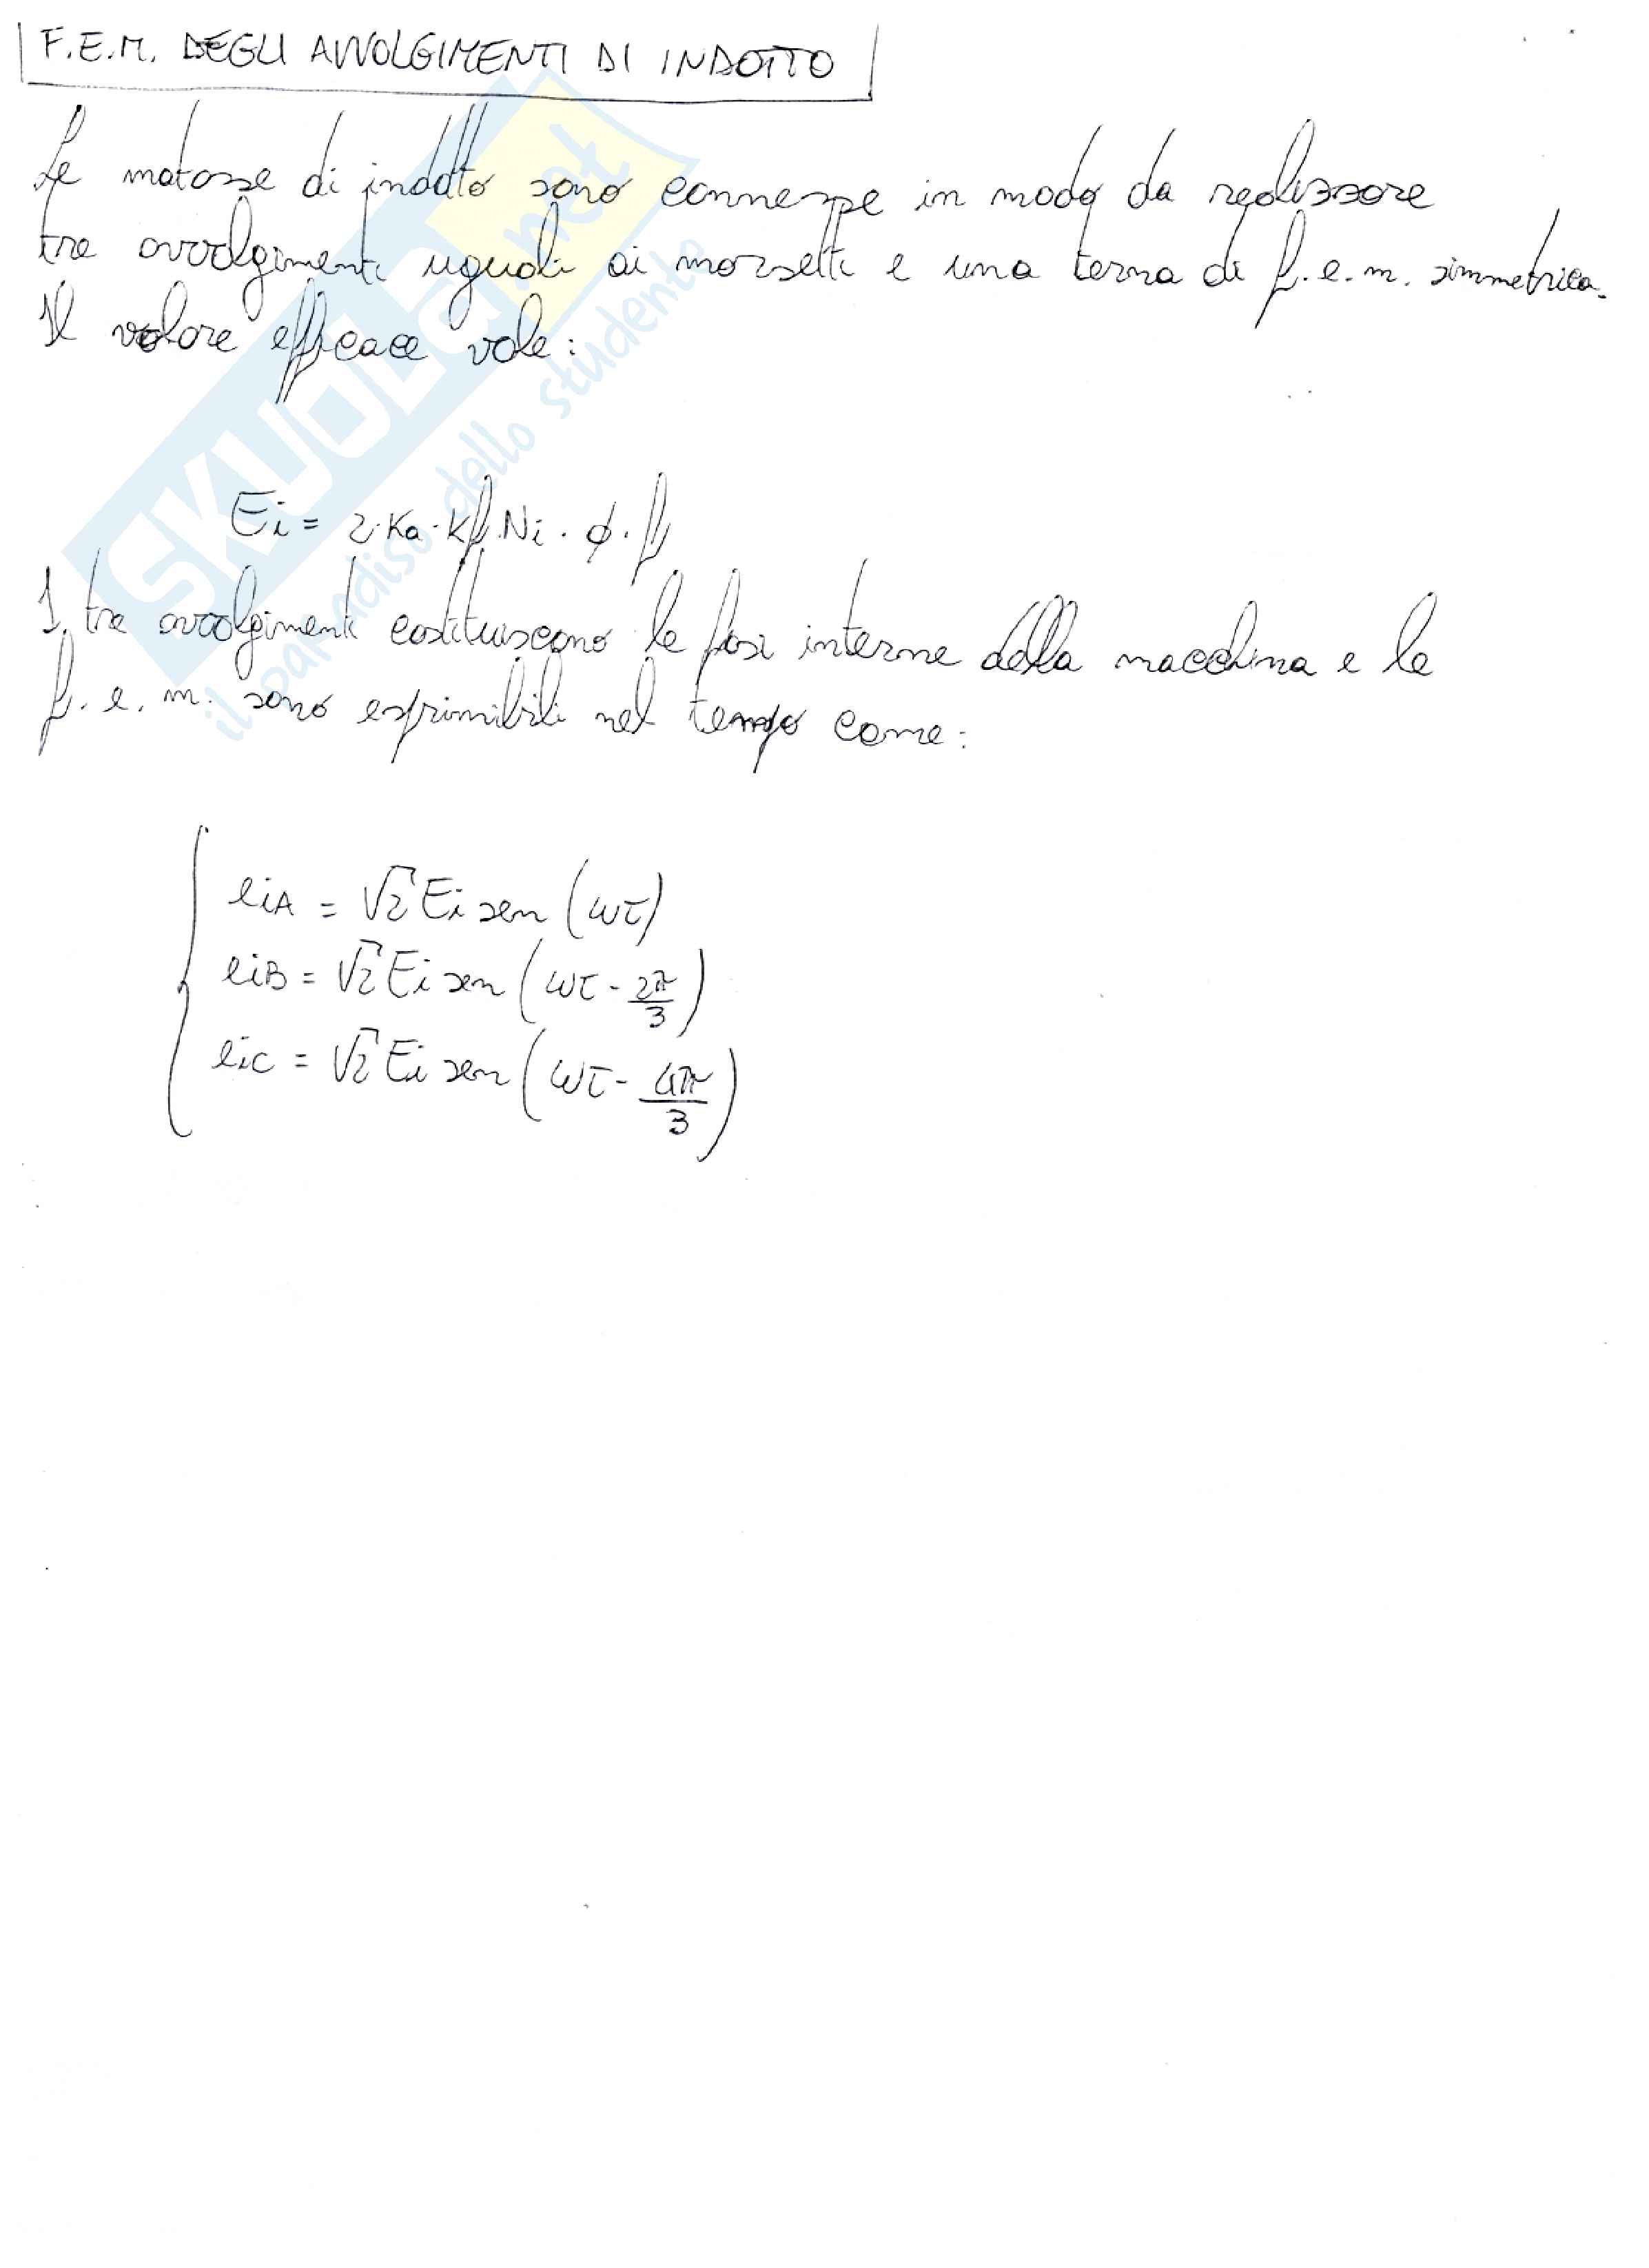 F.E.M. DEGLI AVVOLGIMENTI DI INDOTTO
Le matasse di indotto sono connesse in modo da realizzare
tre avvolgimenti uguali ai morsetti e una terna di f.e.m. simmetrica.
Il valore efficace vale:
Ei = 2·Ka·Kf·Ni·ϕ·f
I tre avvolgimenti costituiscono le fasi interne della macchina e le
f.e.m. sono esprimibili nel tempo come:
eiA = √2 Ei sen (ωt)
eiB = √2 Ei sen (ωt - 2π/3)
eiC = √2 Ei sen (ωt - 4π/3)
SKUOLA.net
il paradiso dello studente